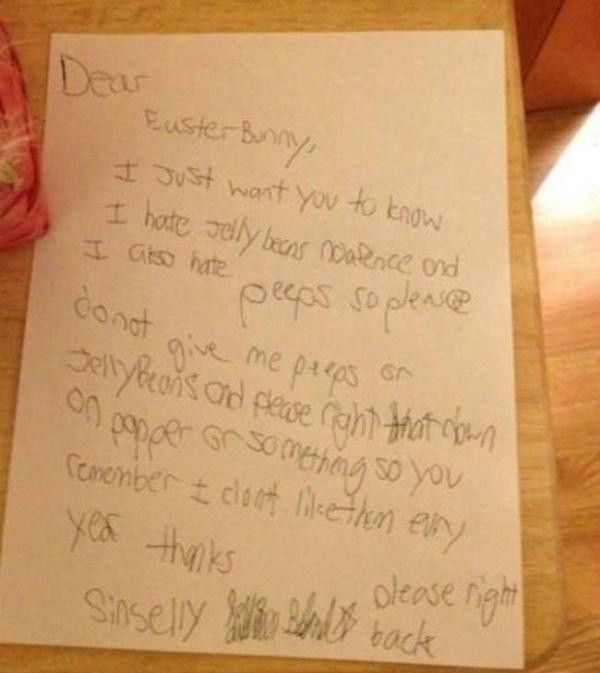 Dear
Easter Bunny,
I Just want you to know
I hate Jelly beans noafence and
I also hate peeps so please
donot give me peeps or
JellyBeans and please right that down
on papper or something so you
remember I dont like them evry
year thanks
Sinselly please right
back